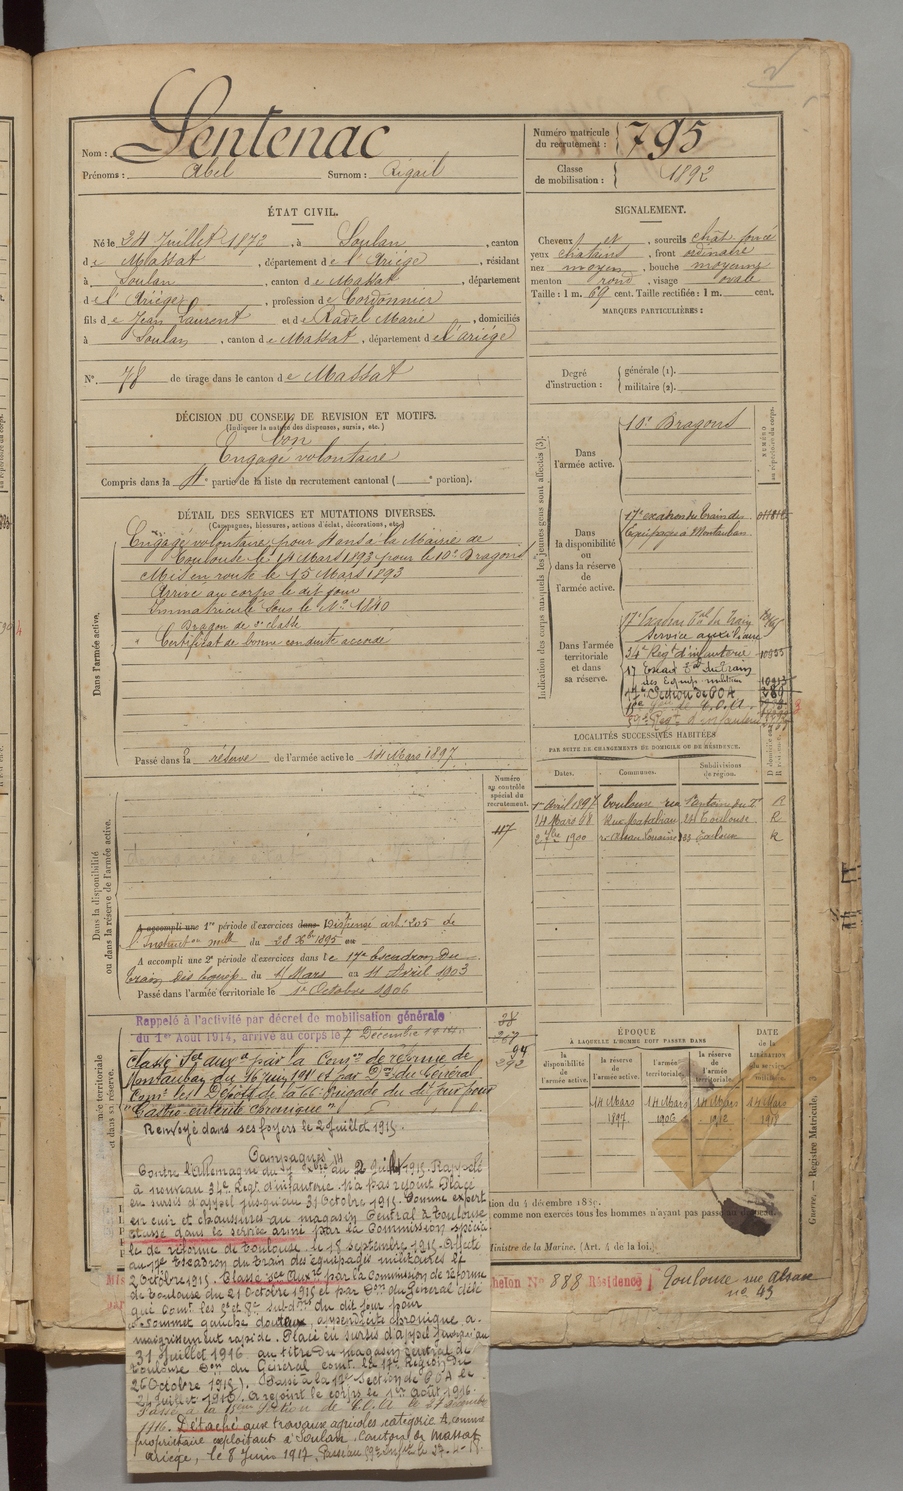 Nom : Sentenac
Prénoms : Abel Surnom : Rigail
Numéro matricule du recrutement : 795
Classe de mobilisation : 1892
ÉTAT CIVIL.
Né le 24 Juillet 1872, à Soulan, canton
de Massat, département de l'Ariège, résidant
à Soulan, canton de Massat, département
de l'Ariège, profession de Cordonnier
fils de Jean Laurent et de Radel Marie, domiciliés
à Soulan, canton de Massat, département de l'ariège
N° 78 de tirage dans le canton de Massat
SIGNALEMENT.
Cheveux et , sourcils chât. foncé
yeux chatains, front ordinaire
nez moyen, bouche moyenne
menton rond, visage ovale
Taille : 1 m. 69 cent. Taille rectifiée : 1 m. cent.
MARQUES PARTICULIÈRES :
Degré d'instruction : générale (1).
militaire (2).
DÉCISION DU CONSEIL DE REVISION ET MOTIFS.
(Indiquer la nature des dispenses, sursis, etc.)
bon
Engagé volontaire
Compris dans la 4e partie de la liste du recrutement cantonal ( e portion).
DÉTAIL DES SERVICES ET MUTATIONS DIVERSES.
(Campagnes, blessures, actions d'éclat, décorations, etc.)
Dans l'armée active.
Engagé volontaire pour 4 ans à la Mairie de
Toulouse le 14 Mars 1893 pour le 10e Dragons
Mis en route le 15 Mars 1893
Arrivé au corps le dit jour
Immatriculé sous le No 1840
Dragon de 2e classe
Certificat de bonne conduite accordé
Passé dans la réserve de l'armée active le 14 Mars 1897
Indication des corps auxquels les jeunes gens sont affectés (3).
NUMÉRO au répertoire du corps.
Dans l'armée active.
10e Dragons
Dans la disponibilité ou dans la réserve de l'armée active.
17e escadron du Train des
Equipages à Montauban
Dans l'armée territoriale et dans sa réserve.
Service auxiliaire
34e Régt d'infanterie
17 Escad Tal du Train
des Equip. militaires
17e Section de COA
LOCALITÉS SUCCESSIVES HABITÉES
PAR SUITE DE CHANGEMENTS DE DOMICILE OU DE RÉSIDENCE.
Dates. Communes. Subdivisions de région.
1er Avril 1897 Toulouse R
14 Mars 98 Rue Matabiau Toulouse R
1900 Toulouse R
Numéro au contrôle spécial du recrutement.
47
Dans la disponibilité ou dans la réserve de l'armée active.
A accompli une 1re période d'exercices dans Dispensé art. 205 de
l'Instruction melle du 28 Xbre 1895 au
A accompli une 2e période d'exercices dans le 17e Escadron du
Train des Equip. du 15 Mars au 11 Avril 1903
Passé dans l'armée territoriale le 1er Octobre 1906
Rappelé à l'activité par décret de mobilisation générale
du 1er Août 1914, arrivé au corps le 7 Décembre 1914
292
Classé Sce auxre par la Comon de réforme de
Montauban du 16 Juin 1915 et par Don du Général
Comt les Dépôts de la 66e Brigade du dt jour pour
"Gastro-entérite chronique"
Renvoyé dans ses foyers le 2 Juillet 1915.
ÉPOQUE
À LAQUELLE L'HOMME DOIT PASSER DANS
DATE DE LA LIBÉRATION du service militaire.
la disponibilité de l'armée active. la réserve de l'armée active. l'armée territoriale. la réserve de l'armée territoriale.
14 Mars 1897 14 Mars 1906 14 Mars 1912 14 Mars 1918
Guerre. — Registre Matricule.
Campagnes
Contre l'Allemagne du 7 Xbre 14 au 2 Juillet 1915. Rappelé
à nouveau 34e Régt d'infanterie. N'a pas rejoint. Placé
en sursis d'appel jusqu'au 31 Octobre 1915. Comme expert
en cuir et chaussures au magasin Central de Toulouse
Classé dans le service armé par la Commission spécia
le de réforme de Toulouse le 18 septembre 1915. Affecté
au 17e Escadron du Train des équipages militaires le
2 Octobre 1915. Classé sce auxre par la Commission de réforme
de Toulouse du 21 Octobre 1915 et par Don du Général délé
gué Comt les 2e et 8e subdons du dit jour pour
"Sommet gauche douteux, appendicite chronique a-
maigrissement rapide. Placé en sursis d'appel jusqu'au
31 Juillet 1916 au titre du magasin central de
Toulouse Don du Général comt la 17e Région du
26 Octobre 1915). Passé à la 17e Section de COA le
21 Juillet 1916. A rejoint le corps le 1er août 1916.
1916. Détaché aux travaux agricoles catégorie A comme
propriétaire exploitant à Soulan, Canton de Massat
Ariège, le 8 Juin 1917.
ition du 4 décembre 1830,
comme non exercés tous les hommes n'ayant pas passé
Ministre de la Marine. (Art. 4 de la loi.)
helon No 888 Résidence Toulouse rue Alsace
no 43